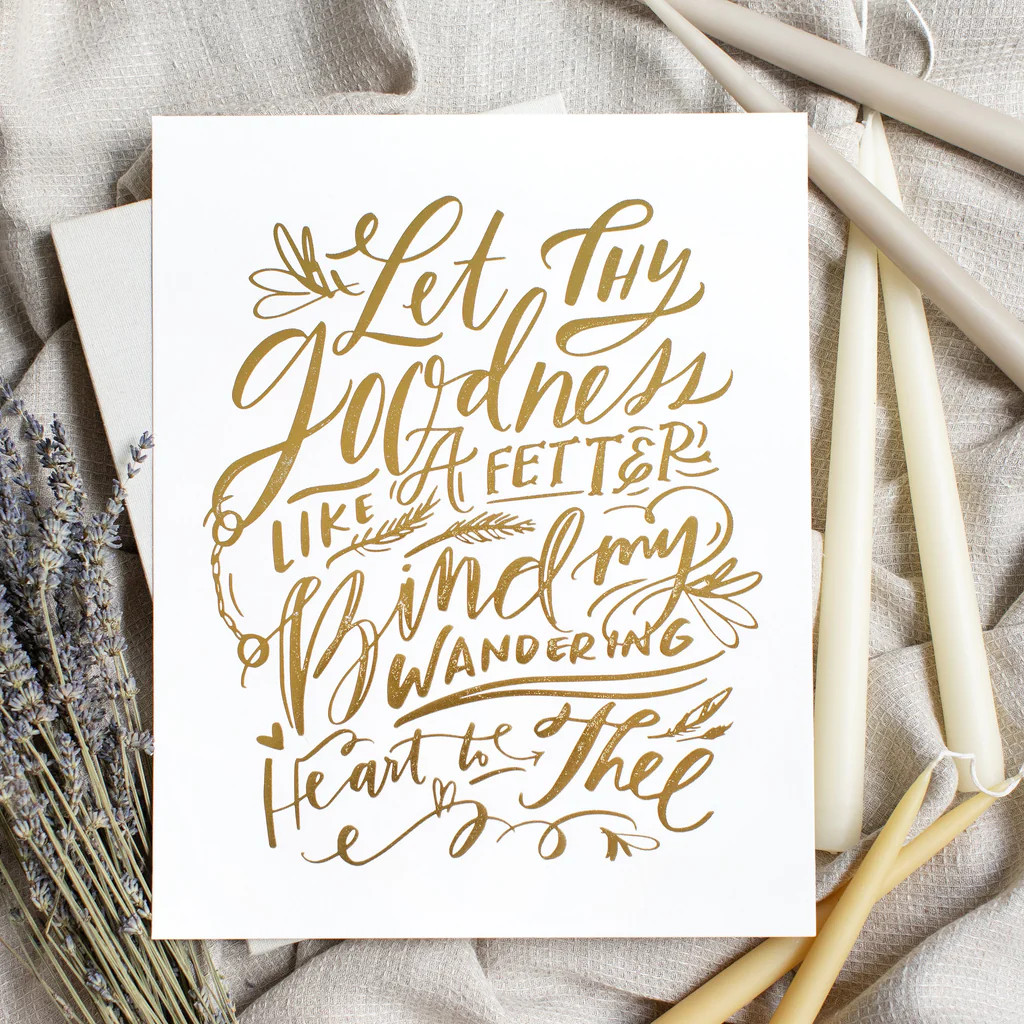 Let THY
goodness
LIKE A FETTER
Bind my
WANDERING
Heart to Thee